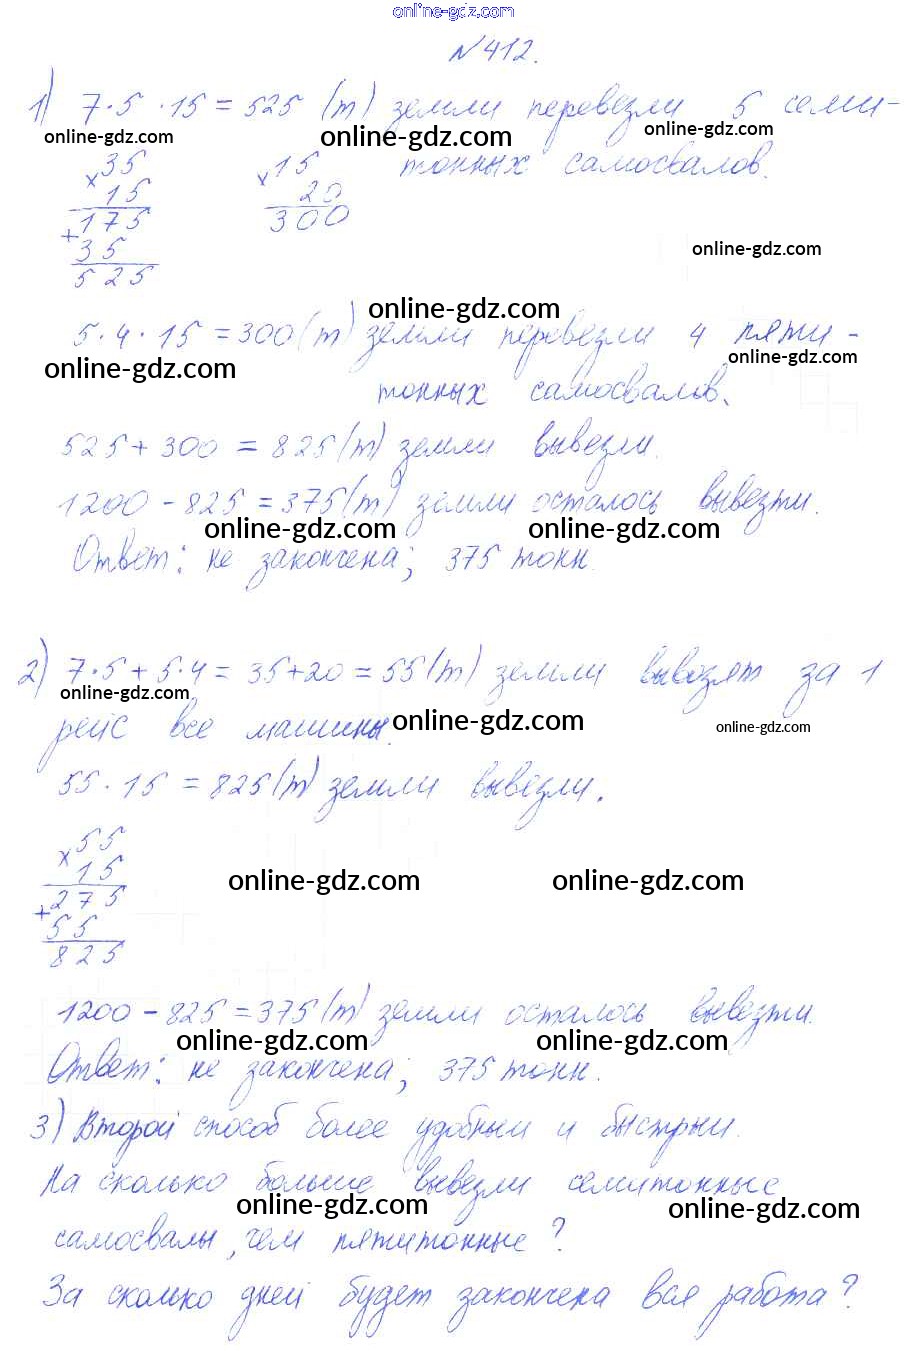 online-gdz.com
№412.
1) 7·5·15=525 (т) земли перевезли 5 семи-
online-gdz.com online-gdz.com online-gdz.com
тонных самосвалов.
×35 ×15
15 20
+175 300
35
525
online-gdz.com
online-gdz.com
5·4·15=300(т) земли перевезли 4 пяти-
online-gdz.com online-gdz.com
тонных самосвалов.
525+300=825(т) земли вывезли.
1200-825=375(т) земли осталось вывезти.
online-gdz.com online-gdz.com
Ответ: не закончена; 375 тонн.
2) 7·5+5·4=35+20=55(т) земли вывозят за 1
online-gdz.com
рейс все машины.
online-gdz.com online-gdz.com
55·15=825(т) земли вывезли.
×55
15
+275
55
825
online-gdz.com online-gdz.com
1200-825=375(т) земли осталось вывезти.
online-gdz.com online-gdz.com
Ответ: не закончена; 375 тонн.
3) Второй способ более удобный и быстрый.
На сколько больше вывезли семитонные
online-gdz.com online-gdz.com
самосвалы, чем пятитонные?
За сколько дней будет закончена вся работа?